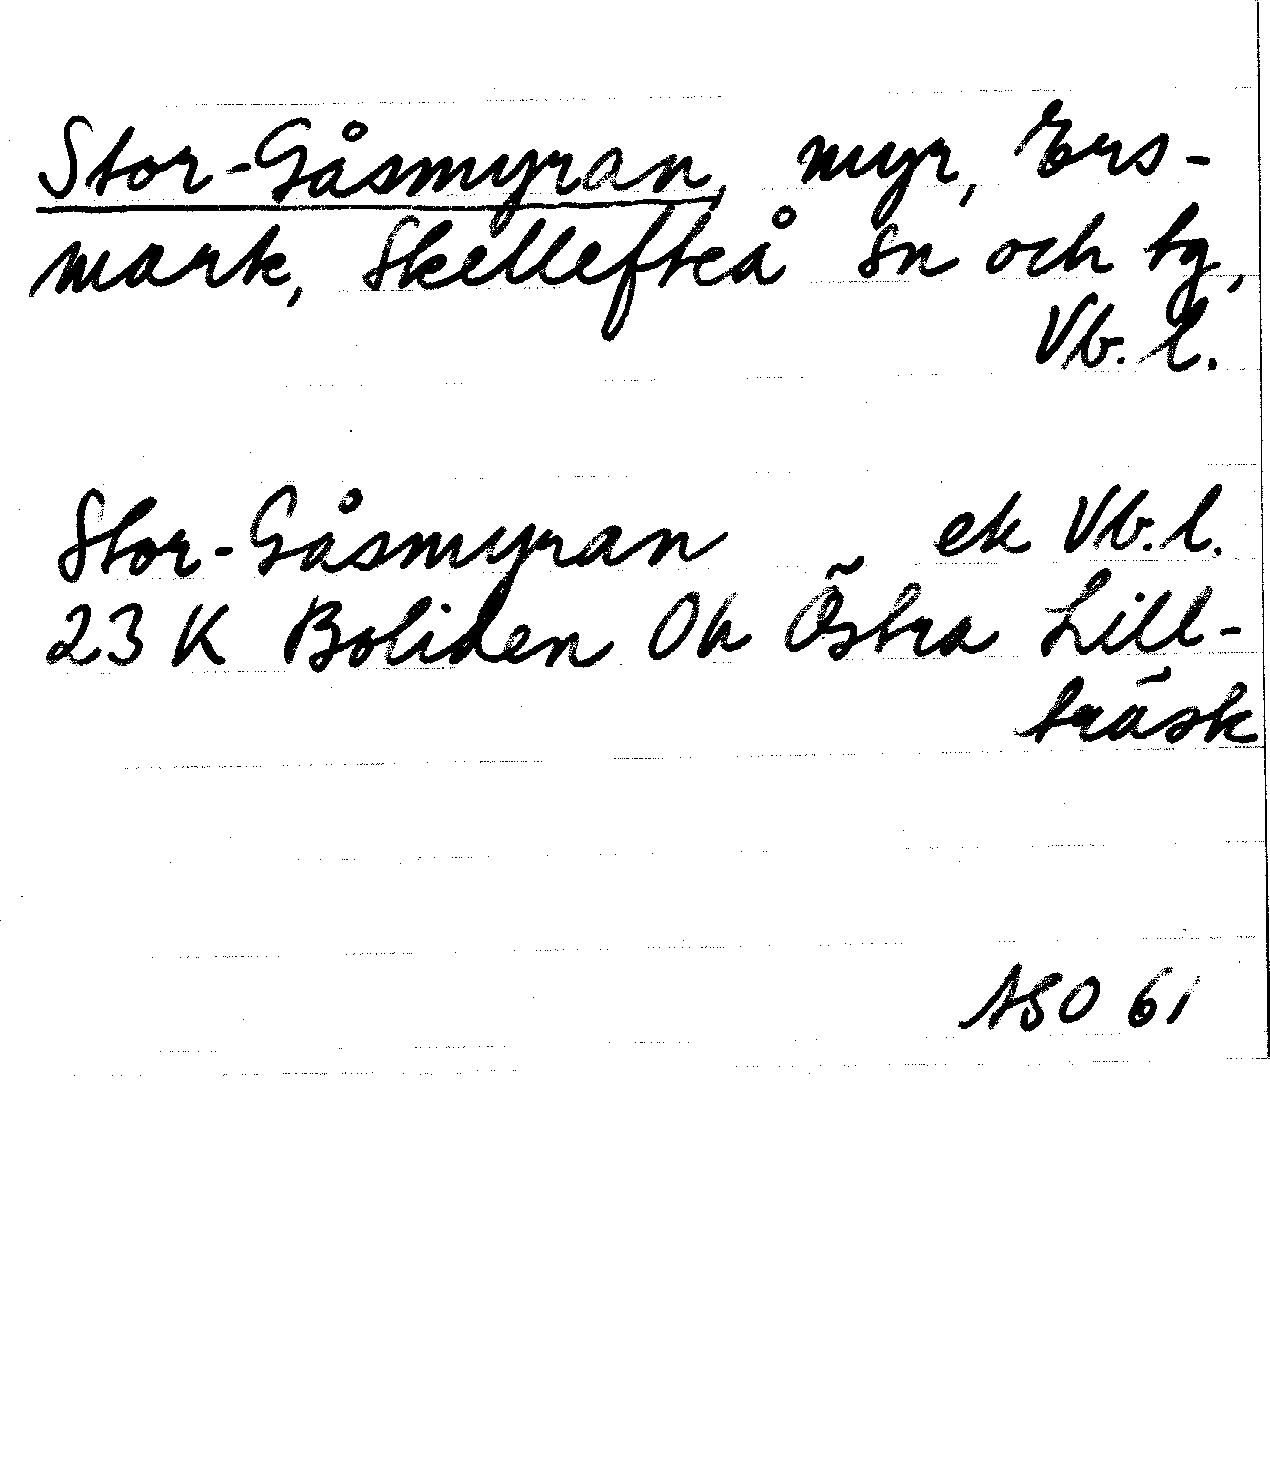 Stor-Gåsmyran, myr, Ers-
mark, Skellefteå sn och tg,
Vb. l.
Stor-Gåsmyran ek Vb. l.
23 K Boliden Oh Östra Lill-
träsk
ASO 61